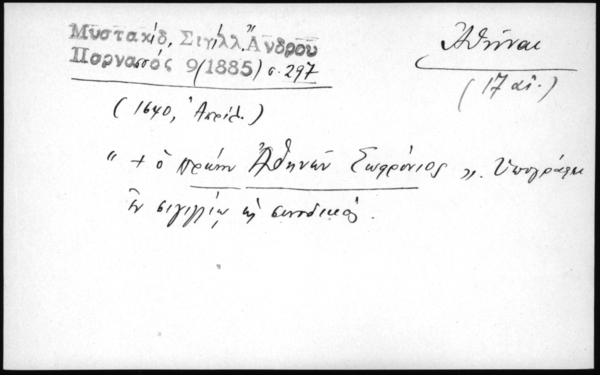 Μυστακίδ, Σιγίλλ. Ἄνδρου
Παρνασσός 9 (1885) σ. 297
Ἀθῆναι
(17 αἰ.)
(1640, Ἀπρίλ.)
" + ὁ πρώην Ἀθηνῶν Σωφρόνιος ". Ὑπογράφει
ἐν σιγιλλίῳ ὡς συνοδικός.